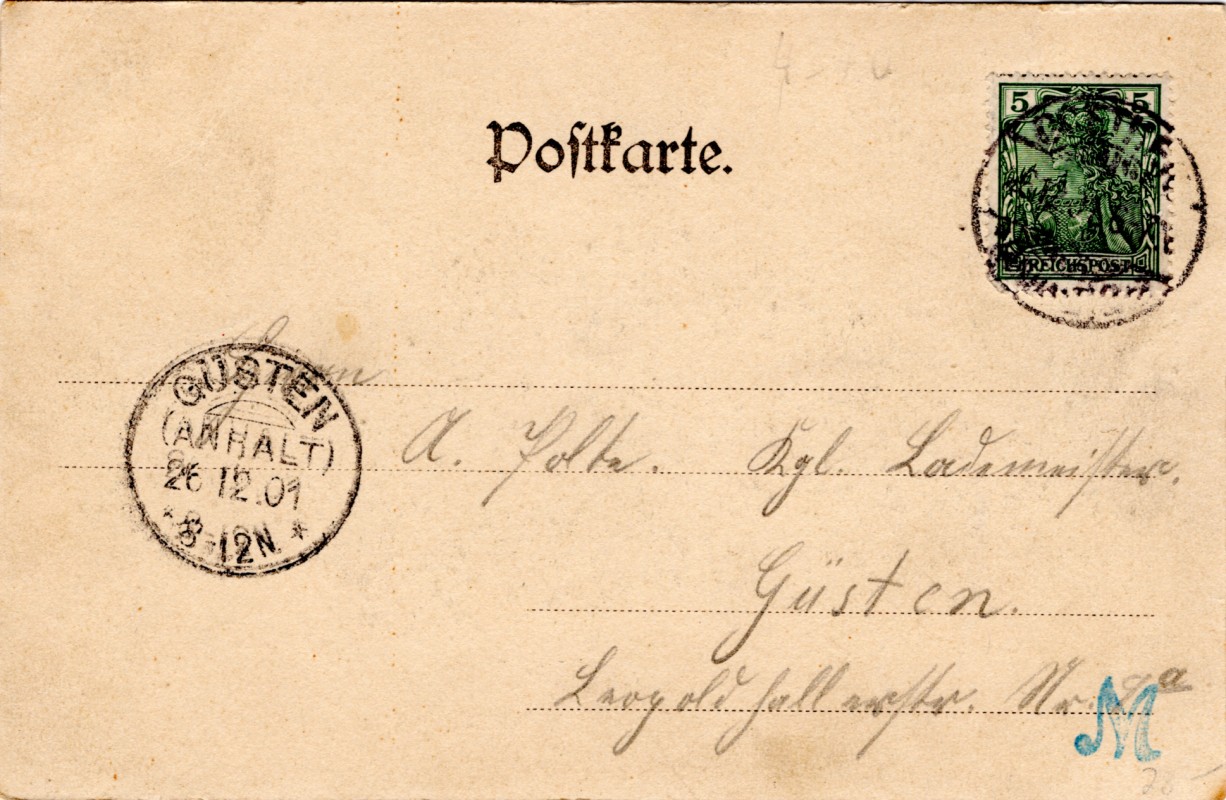 Postkarte.
5 5
REICHSPOST
Herrn
A. Polte. Kgl. Lademeister.
Güsten.
Leopoldhallerstr. Nr. a
GÜSTEN
(ANHALT)
26 12.01
* 8-12N. *
M